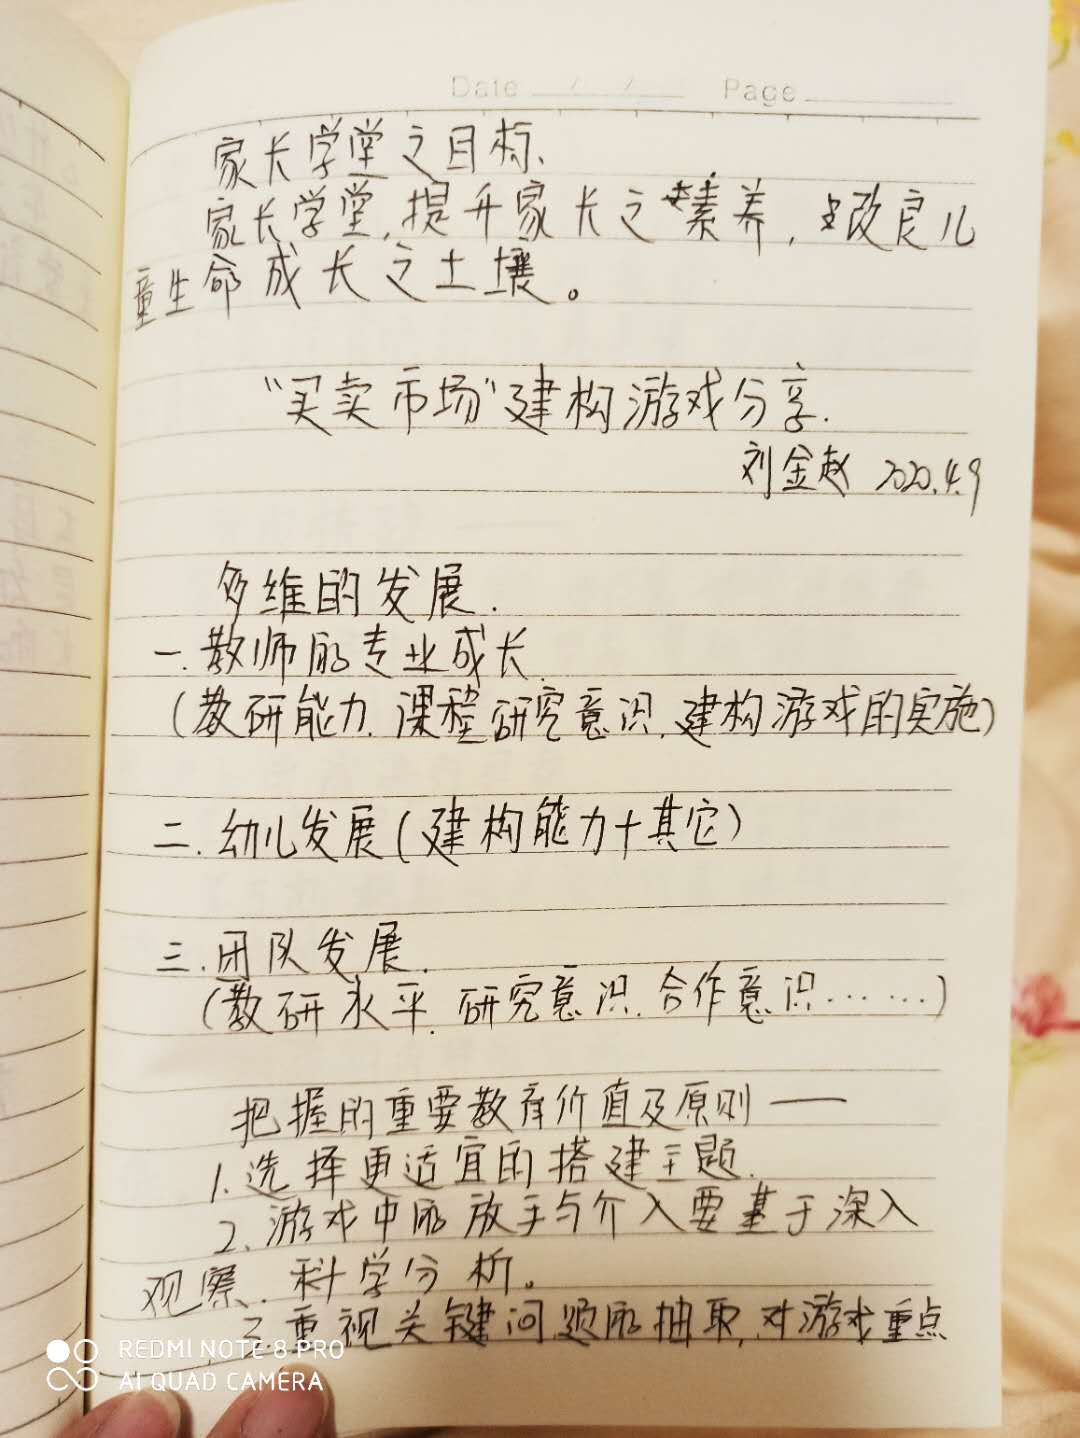 Date / / Page
家长学堂之目标、
家长学堂,提升家长之素养,改良儿
童生命成长之土壤。
“买卖市场”建构游戏分享.
刘金赵 2020.4.9
多维的发展.
一.教师的专业成长.
(教研能力.课程研究意识.建构游戏的实施)
二.幼儿发展(建构能力+其它)
三.团队发展.
(教研水平.研究意识.合作意识……)
把握的重要教育价值及原则——
1.选择更适宜的搭建主题.
2、游戏中的放手与介入要基于深入
观察、科学分析。
3.重视关键问题的抽取,对游戏重点
REDMI NOTE 8 PRO
AI QUAD CAMERA